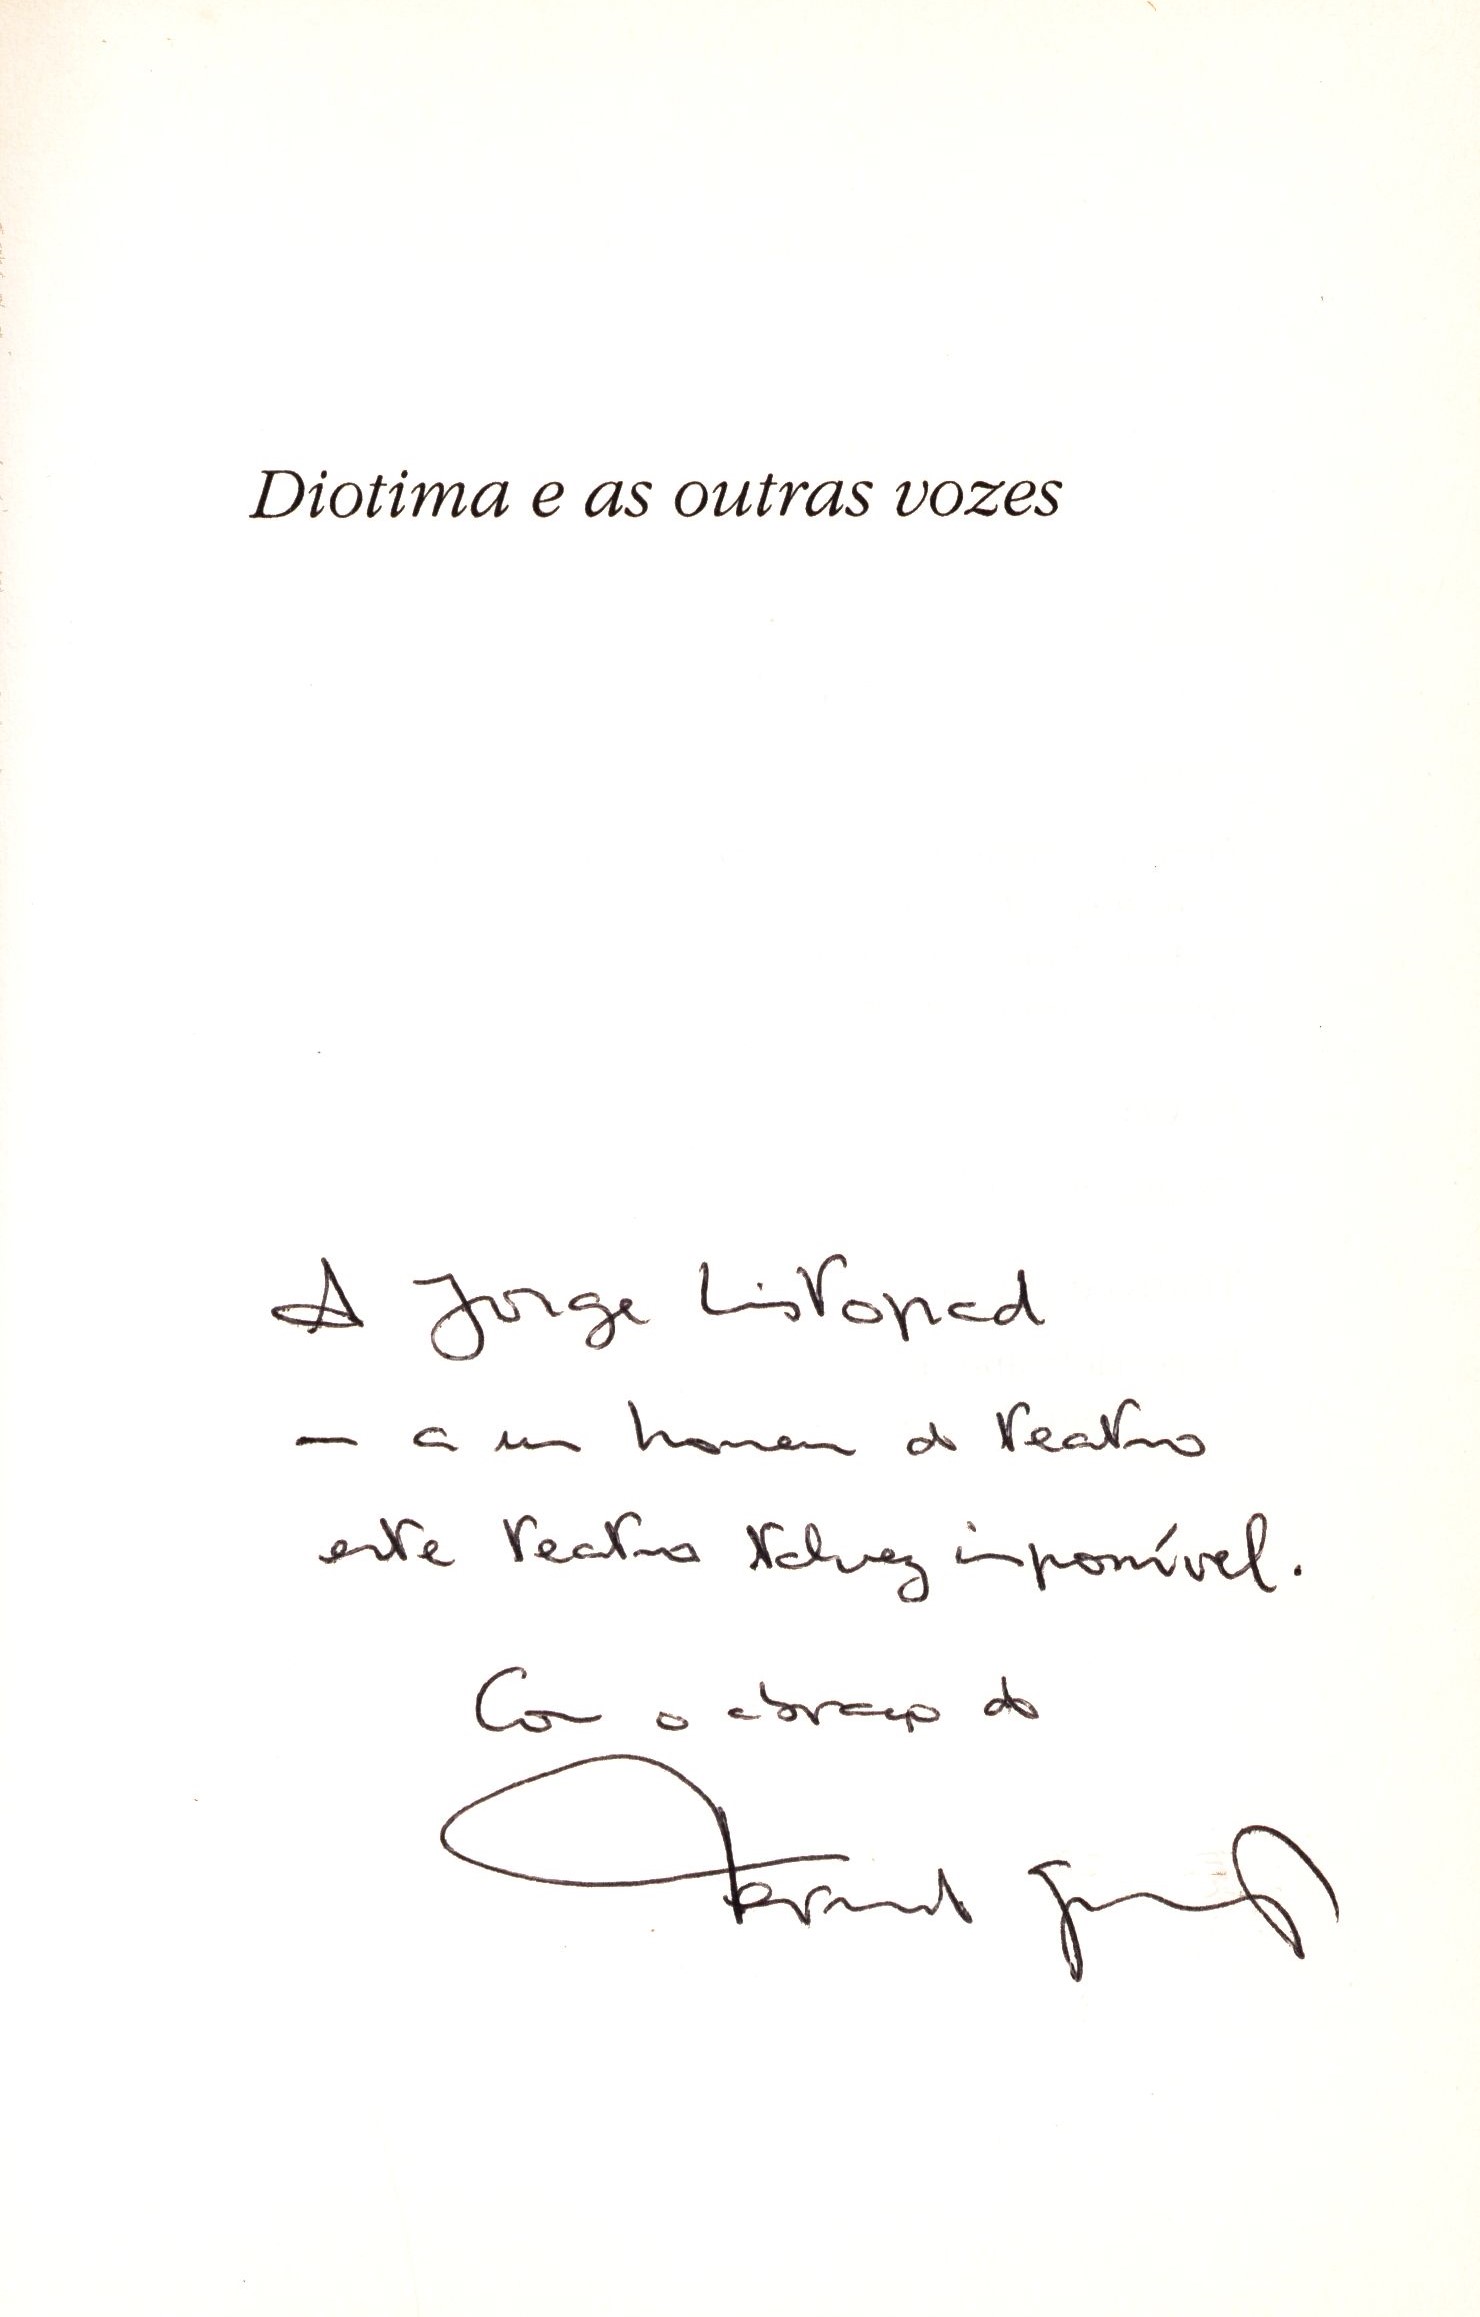 Diotima e as outras vozes
A Jorge Listopad
— a um homem do teatro
este teatro talvez impossível.
Com o abraço do
Fernando Guimarães